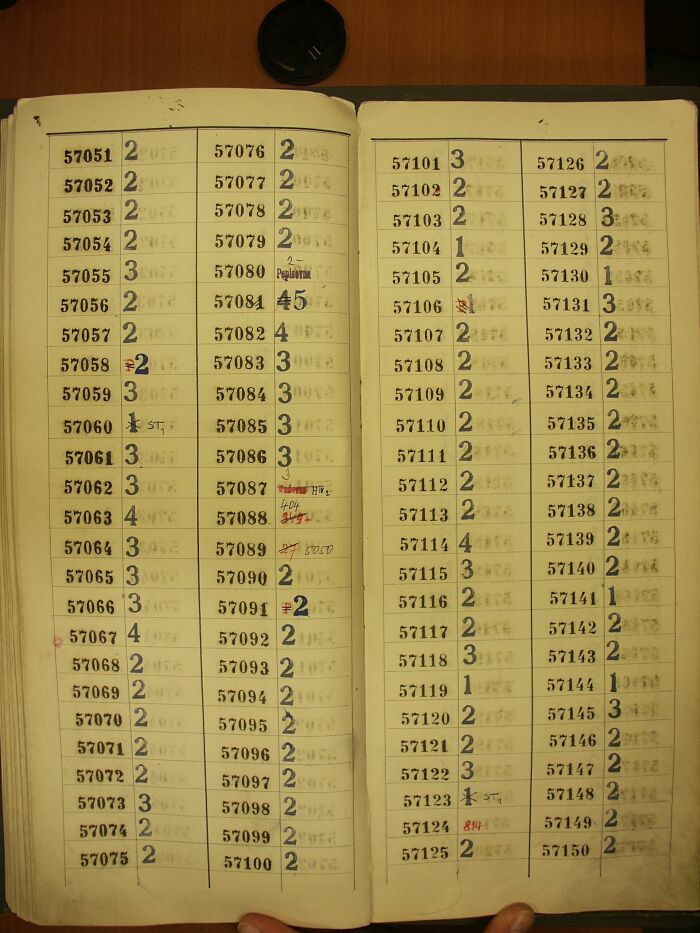 57051 2
57052 2
57053 2
57054 2
57055 3
57056 2
57057 2
57058 2
57059 3
57060 1 ST1
57061 3
57062 3
57063 4
57064 3
57065 3
57066 3
57067 4
57068 2
57069 2
57070 2
57071 2
57072 2
57073 3
57074 2
57075 2
57076 2
57077 2
57078 2
57079 2
57080 2- Popisovna
57081 4 5
57082 4
57083 3
57084 3
57085 3
57086 3
57087 3
57088 404
57089 27 5050
57090 2
57091 2
57092 2
57093 2
57094 2
57095 2
57096 2
57097 2
57098 2
57099 2
57100 2
57101 3
57102 2
57103 2
57104 1
57105 2
57106 1
57107 2
57108 2
57109 2
57110 2
57111 2
57112 2
57113 2
57114 4
57115 3
57116 2
57117 2
57118 3
57119 1
57120 2
57121 2
57122 3
57123 1 ST1
57124 814
57125 2
57126 2
57127 2
57128 3
57129 2
57130 1
57131 3
57132 2
57133 2
57134 2
57135 2
57136 2
57137 2
57138 2
57139 2
57140 2
57141 1
57142 2
57143 2
57144 1
57145 3
57146 2
57147 2
57148 2
57149 2
57150 2